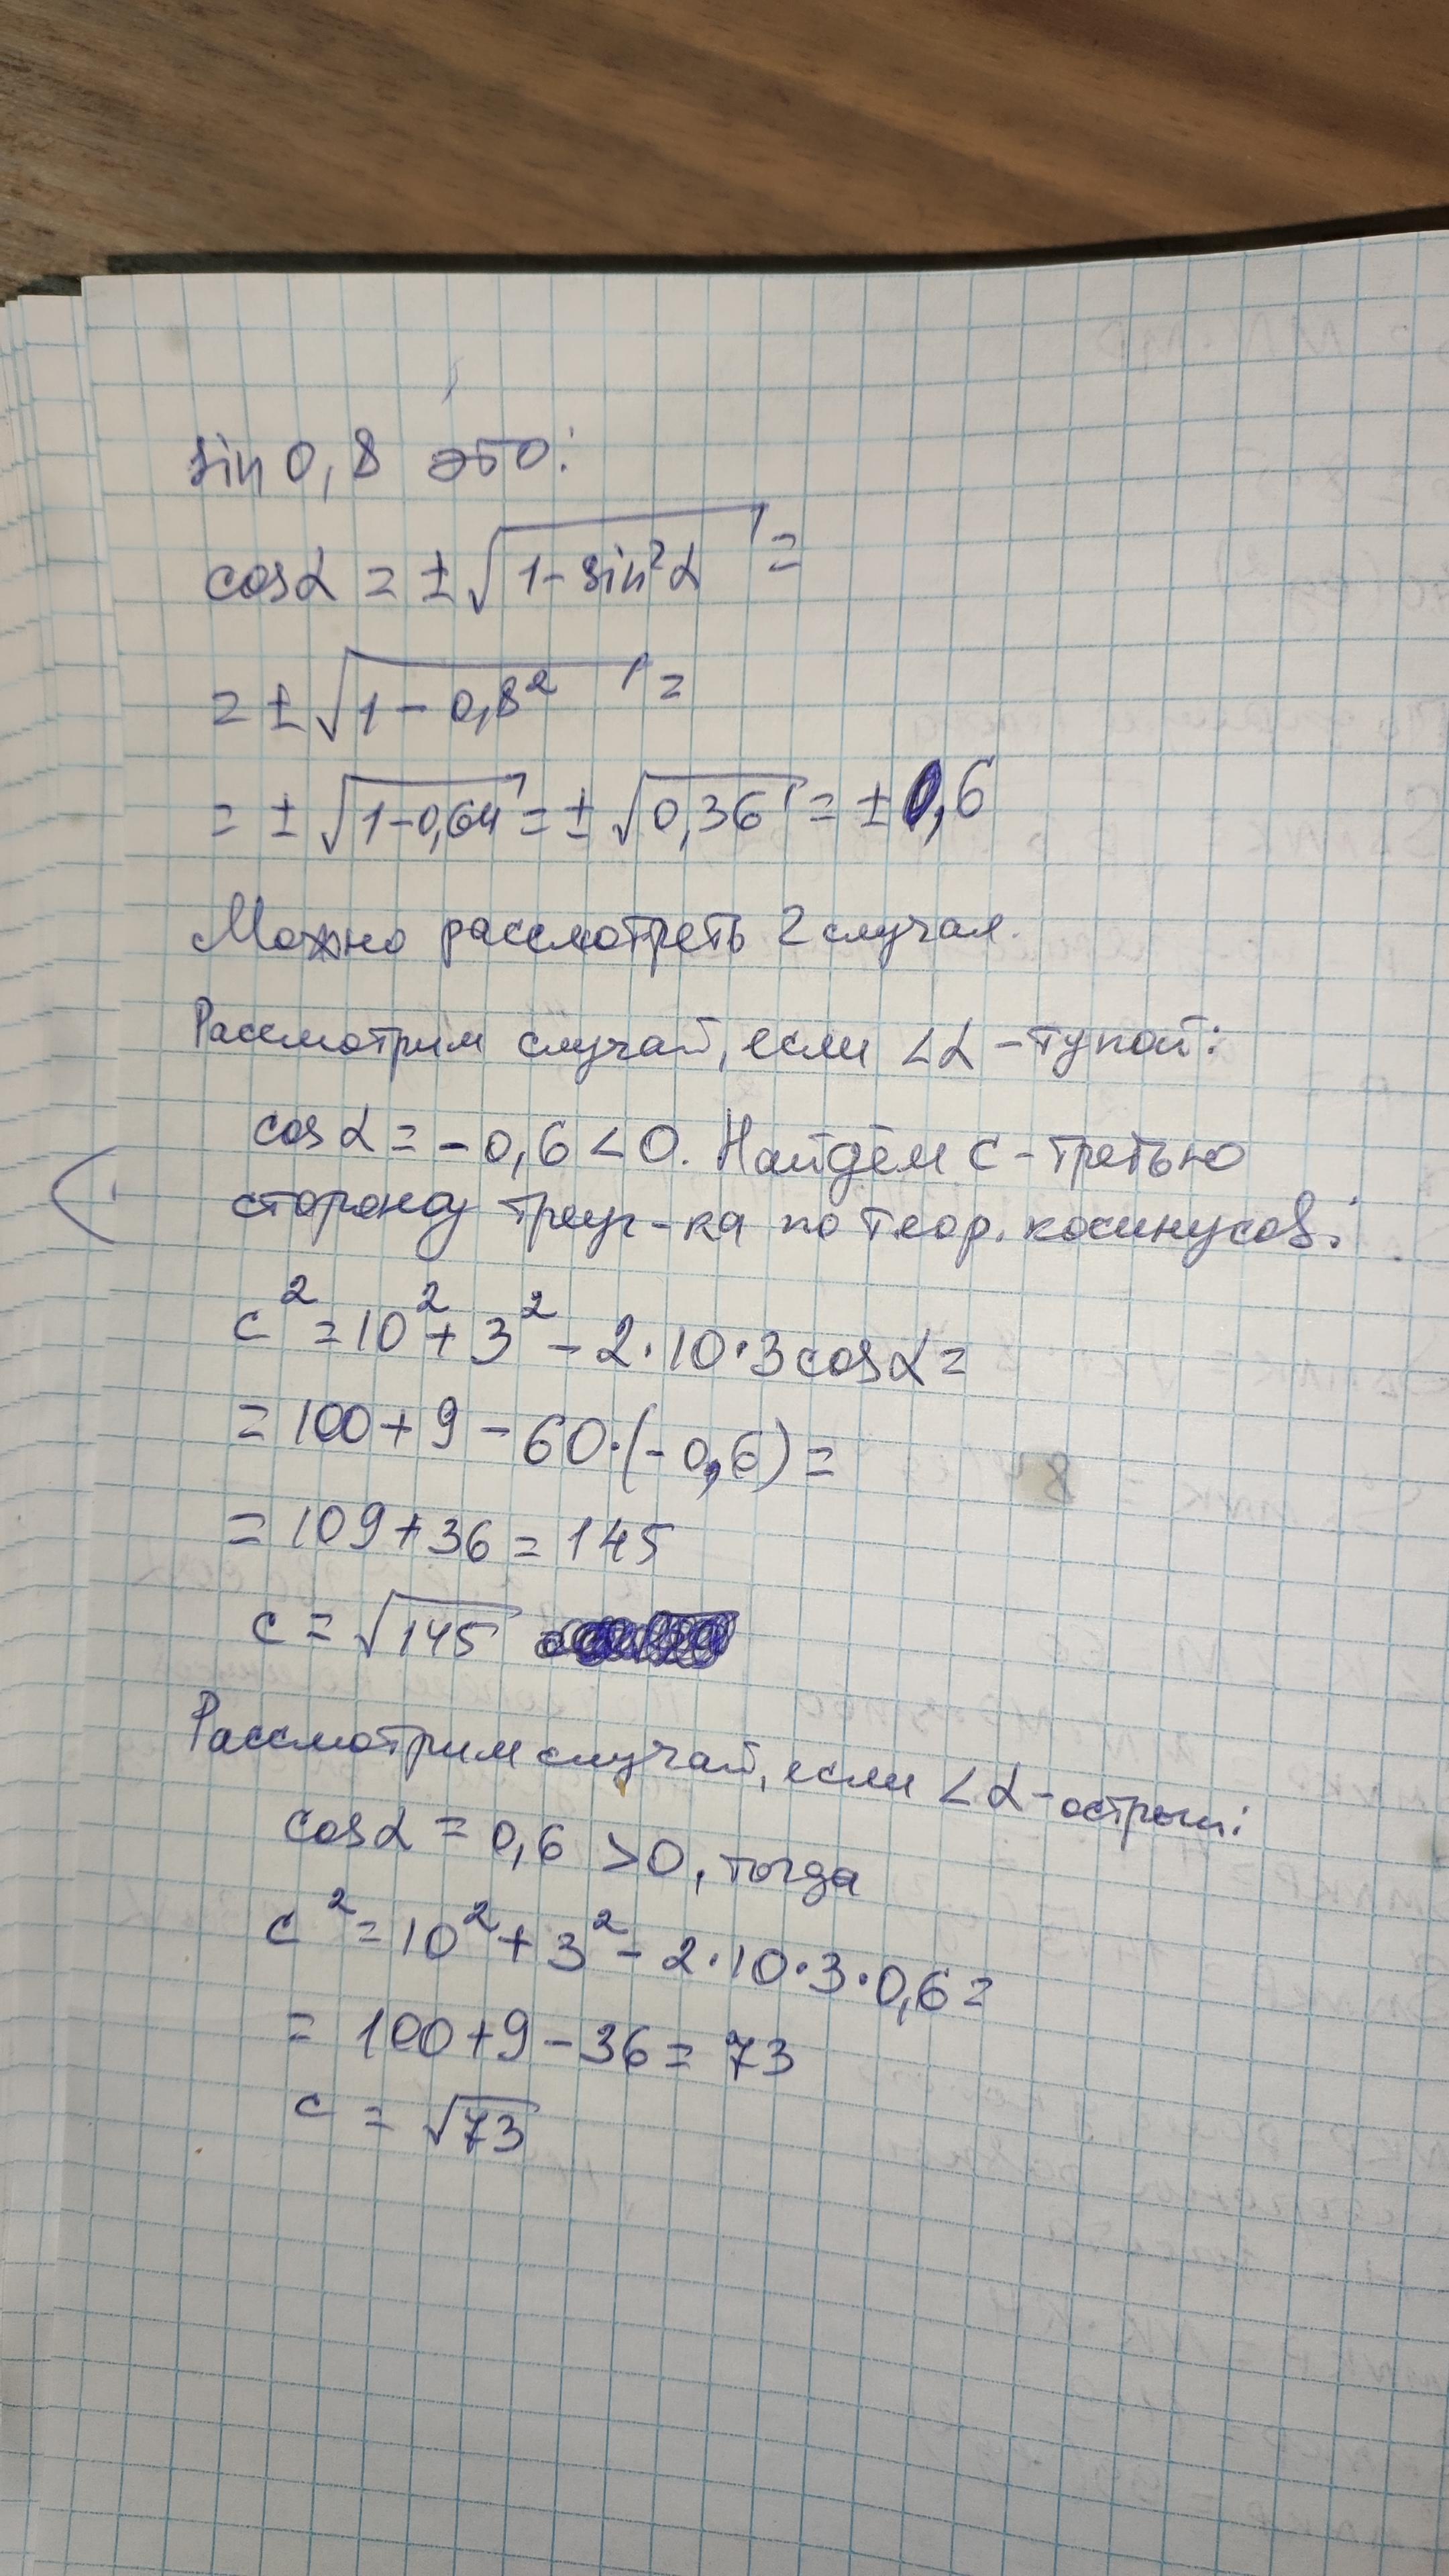 sin 0,8 это:
cosα = ±√(1 - sin²α) =
= ±√(1 - 0,8²) =
= ±√(1-0,64) = ±√(0,36) = ±0,6
Можно рассмотреть 2 случая.
Рассмотрим случай, если ∠α - тупой:
cosα = -0,6 < 0. Найдём c - третью
сторону треуг-ка по теор. косинусов:
c² = 10² + 3² - 2·10·3cosα =
= 100 + 9 - 60·(-0,6) =
= 109 + 36 = 145
c = √145
Рассмотрим случай, если ∠α - острый:
cosα = 0,6 > 0, тогда
c² = 10² + 3² - 2·10·3·0,6 =
= 100 + 9 - 36 = 73
c = √73